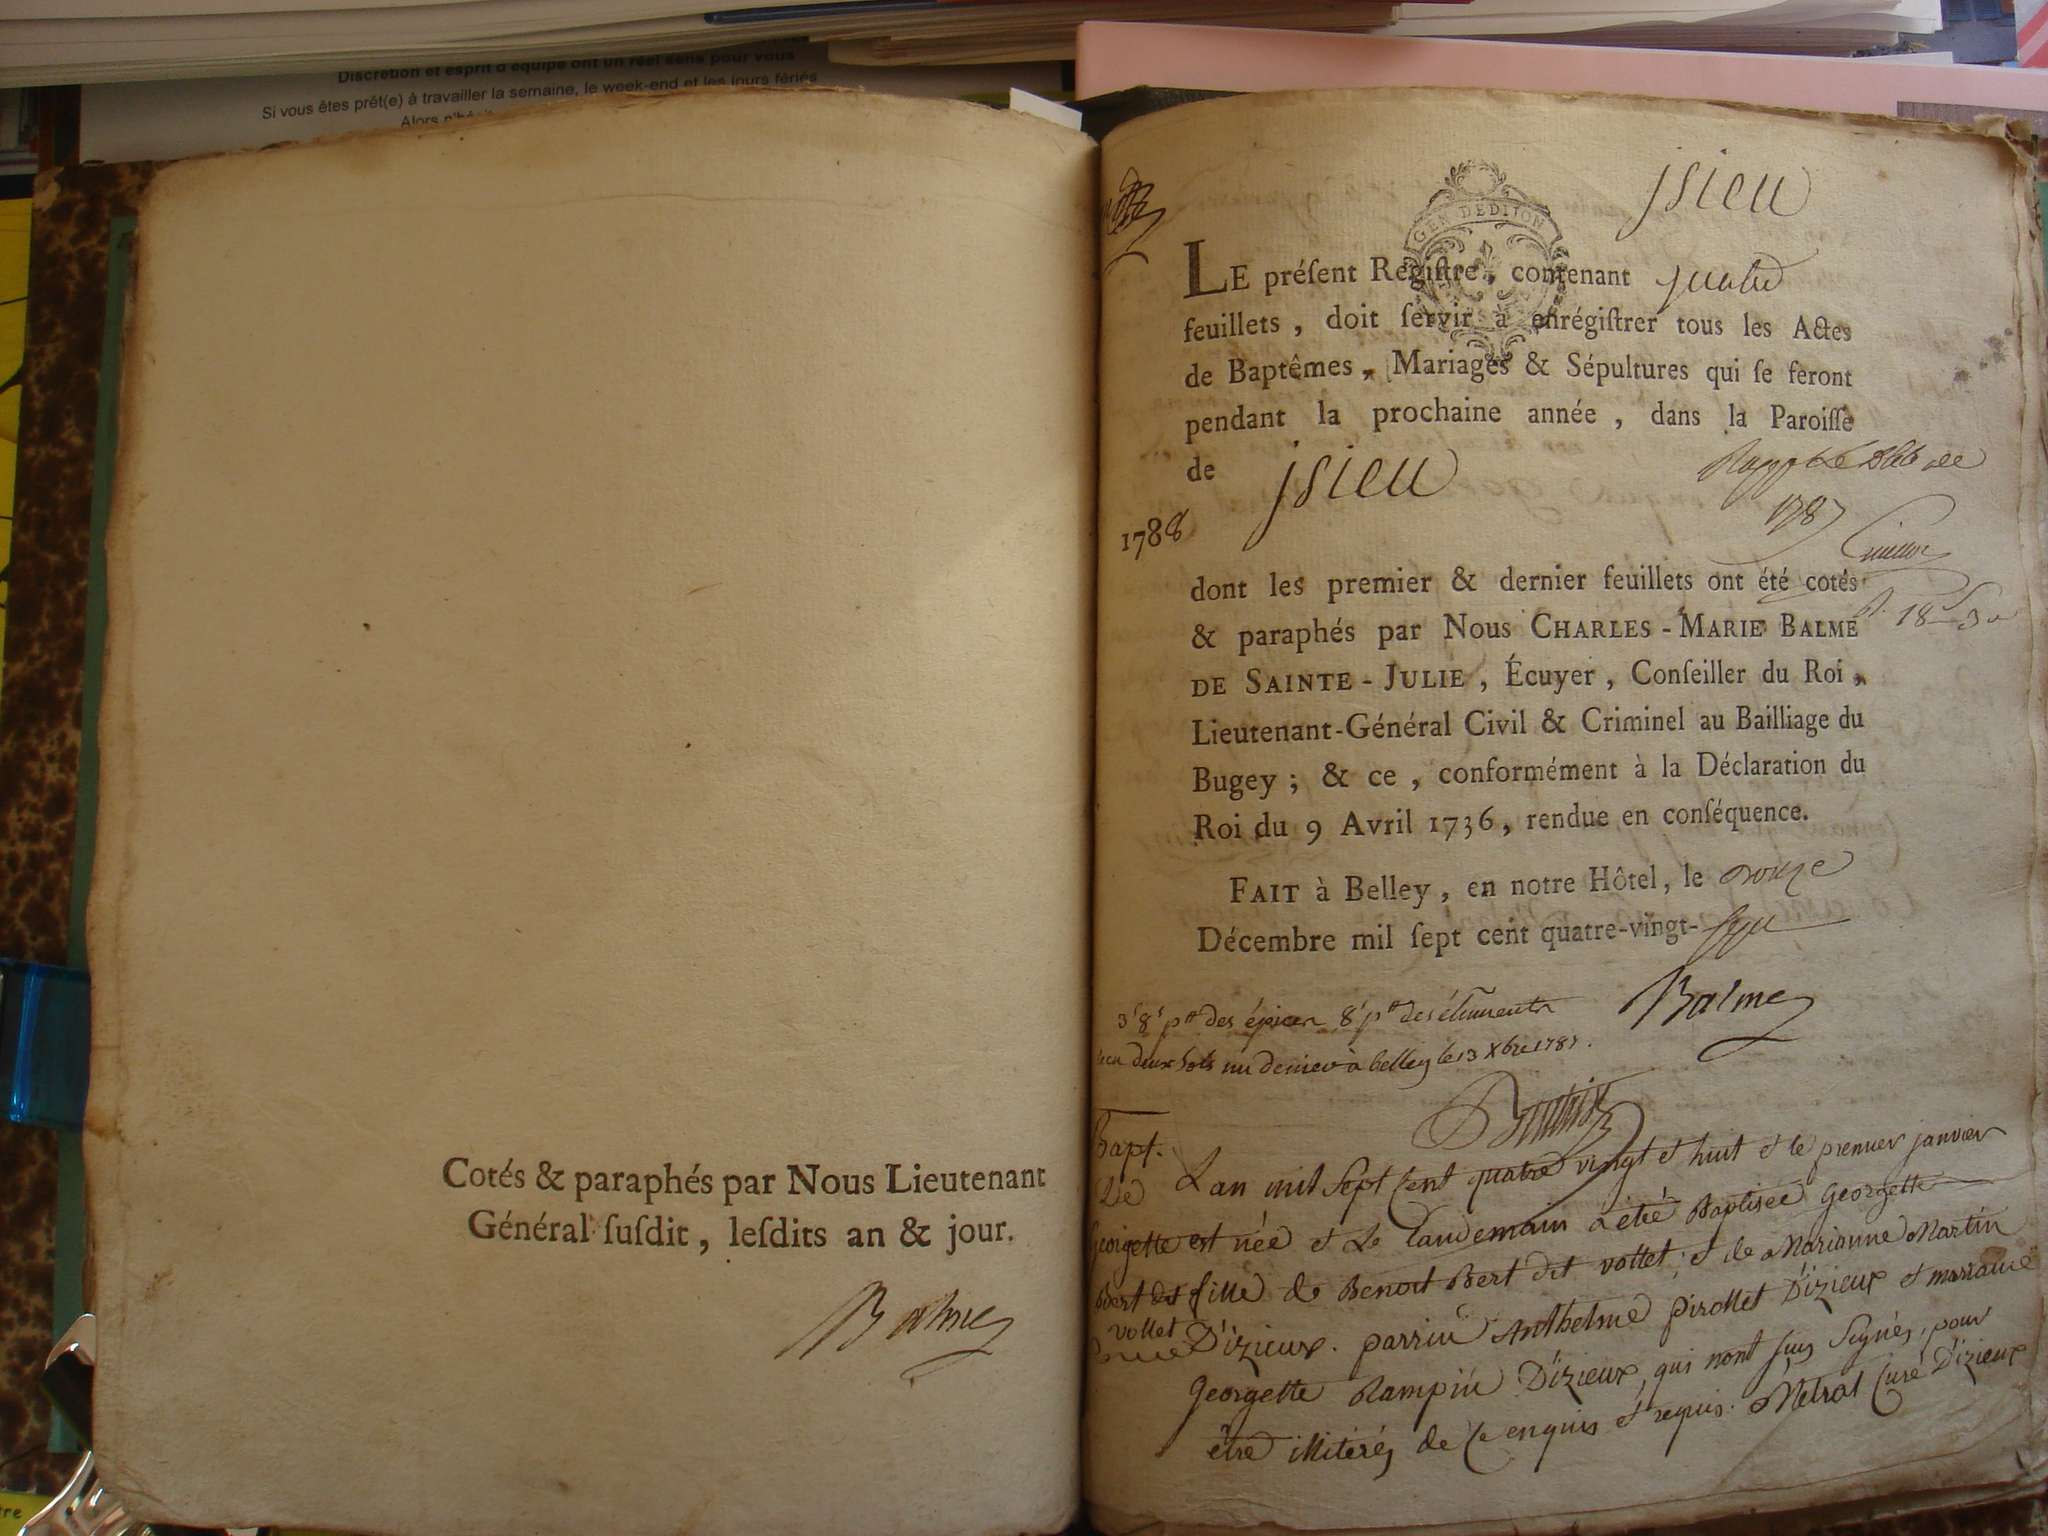 Discrétion et esprit d'équipe ont un réel sens pour vous
Si vous êtes prêt(e) à travailler la semaine, le week-end et les jours fériés
Alors
Cotés & paraphés par Nous Lieutenant
Général ſuſdit, leſdits an & jour.
Balme
jsieu
GEN DE DIJON
LE préſent Régiſtre, contenant quatre
feuillets, doit ſervir à enrégiſtrer tous les Actes
de Baptêmes, Mariages & Sépultures qui ſe feront
pendant la prochaine année, dans la Paroiſſe
de jsieu
1787
1788
dont les premier & dernier feuillets ont été cotés
& paraphés par Nous CHARLES-MARIE BALME
DE SAINTE-JULIE, Écuyer, Conſeiller du Roi,
Lieutenant-Général Civil & Criminel au Bailliage du
Bugey; & ce, conformément à la Déclaration du
Roi du 9 Avril 1736, rendue en conſéquence.
FAIT à Belley, en notre Hôtel, le
Décembre mil ſept cent quatre-vingt-sept
Balme
des épices des
deux sols un denier à belley le 13 Xbre 1787.
Bapt. Lan mil Sept Cent quatre vingt et huit et le premier janvier
De
Georgette est née et Le Landemain a eté Baptisée Georgette
Bert dit fille de Benoit Bert dit vollet, et de Marianne Martin
vollet D'izieux. parrin Anthelme pirollet D'izieux et marraine
Georgette Rampin D'izieux, qui nont pas Signés, pour
être illiterés de ce enquis et requis. Metral Curé D'izieux